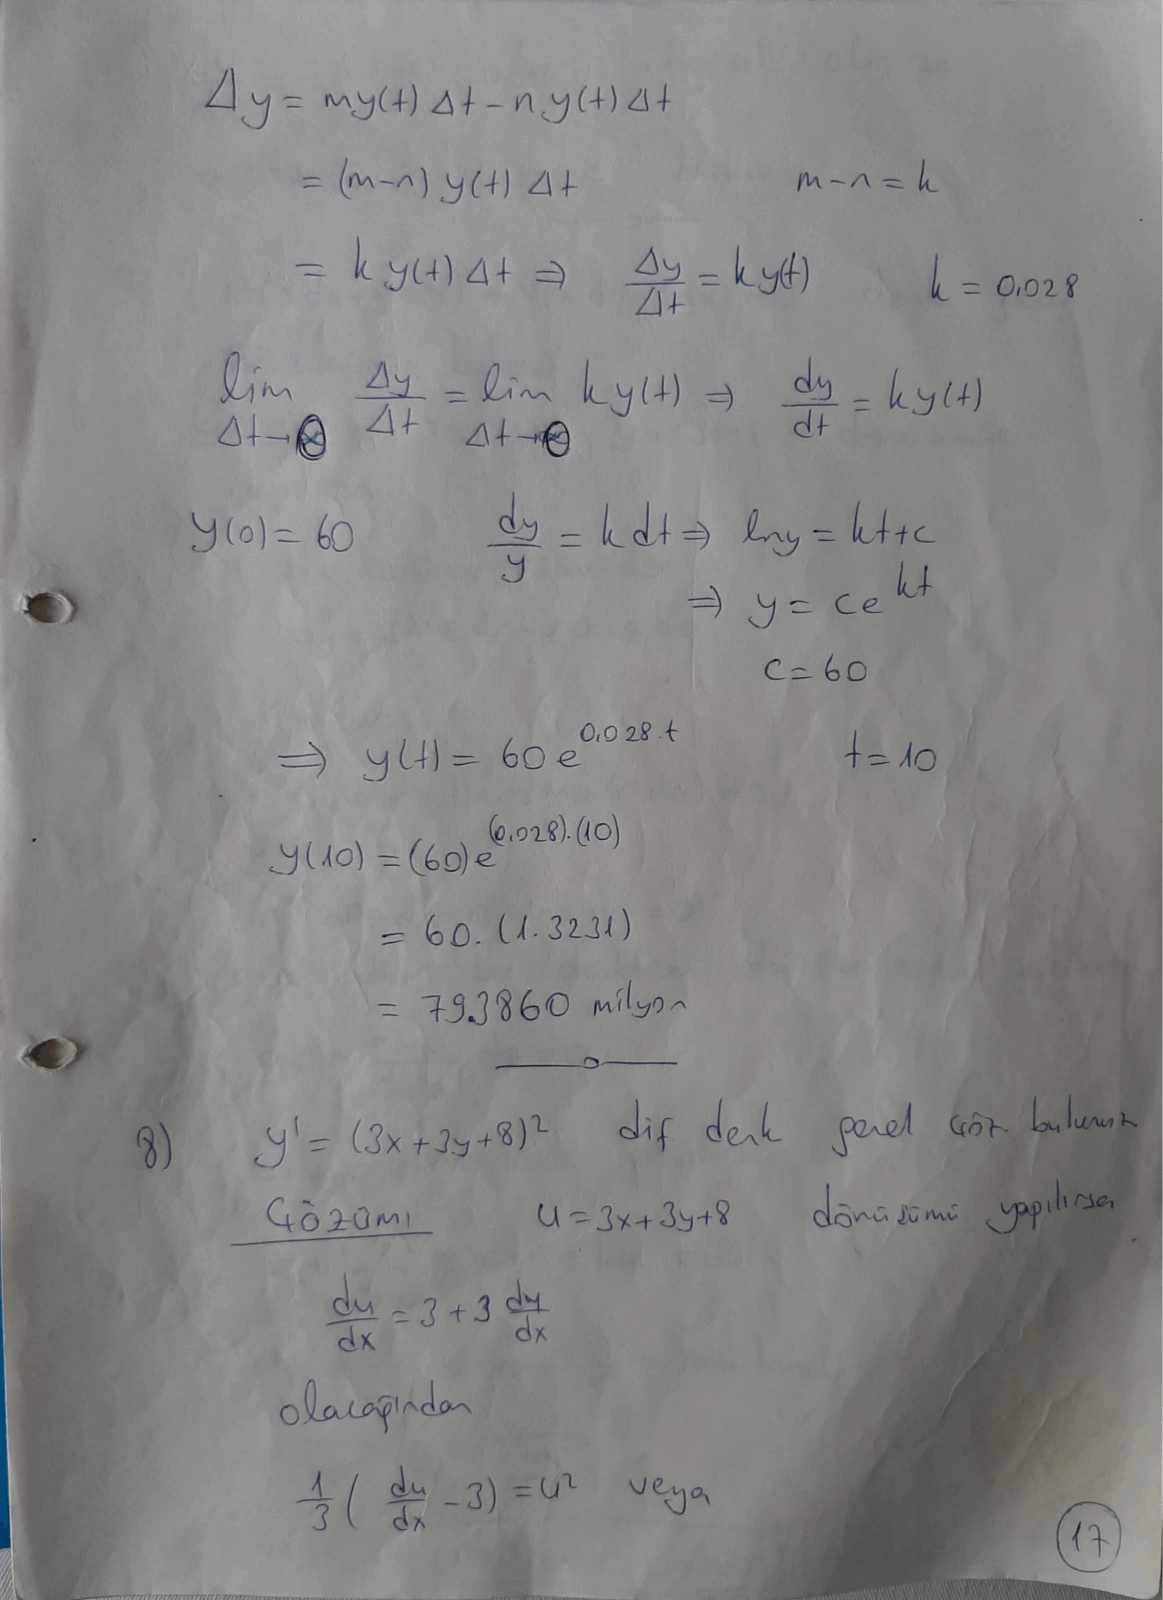 Δy = my(t) Δt - n y(t) Δt
= (m-n) y(t) Δt m-n = k
= k y(t) Δt ⇒ Δy/Δt = k y(t) k = 0.028
lim Δt→0 Δy/Δt = lim Δt→0 k y(t) ⇒ dy/dt = k y(t)
y(0) = 60 dy/y = k dt ⇒ lny = kt+c
⇒ y = ce^kt
c = 60
⇒ y(t) = 60 e^0.028.t t = 10
y(10) = (60) e^(0.028).(10)
= 60. (1.3231)
= 79.3860 milyon
8) y' = (3x+3y+8)² dif denk genel çöz bulunuz
Çözümı u = 3x+3y+8 dönüşümü yapılırsa
du/dx = 3 + 3 dy/dx
olacağından
1/3 ( du/dx - 3) = u² veya
17